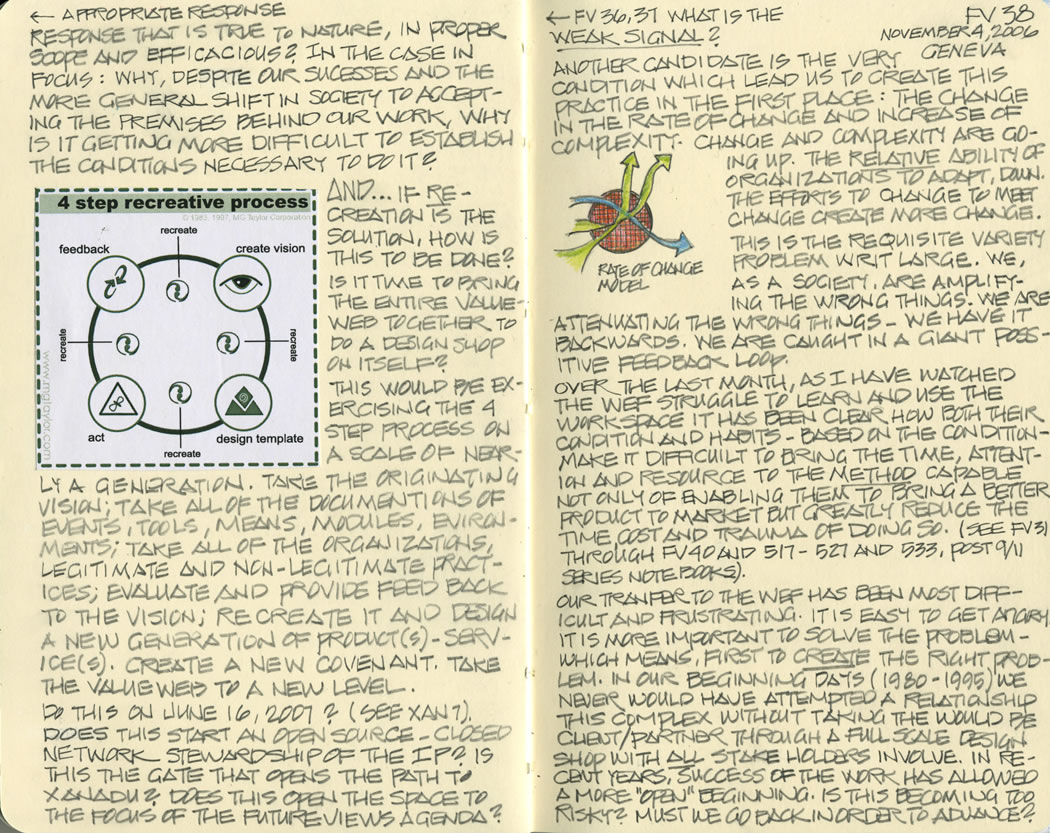 ← APPROPRIATE RESPONSE
RESPONSE THAT IS TRUE TO NATURE, IN PROPER
SCOPE AND EFFICACIOUS? IN THE CASE IN
FOCUS: WHY, DESPITE OUR SUCESSES AND THE
MORE GENERAL SHIFT IN SOCIETY TO ACCEPT-
ING THE PREMISES BEHIND OUR WORK, WHY
IS IT GETTING MORE DIFFICULT TO ESTABLISH
THE CONDITIONS NECESSARY TO DO IT?
4 step recreative process
© 1983, 1997, MG Taylor Corporation
recreate
feedback
create vision
recreate
recreate
act
design template
recreate
www.mgtaylor.com
AND... IF RE-
CREATION IS THE
SOLUTION, HOW IS
THIS TO BE DONE?
IS IT TIME TO BRING
THE ENTIRE VALUE-
WEB TOGETHER TO
DO A DESIGN SHOP
ON ITSELF?
THIS WOULD BE EX-
ERCISING THE 4
STEP PROCESS ON
A SCALE OF NEAR-
LY A GENERATION. TAKE THE ORIGINATING
VISION; TAKE ALL OF THE DOCUMENTIONS OF
EVENTS, TOOLS, MEANS, MODULES, EVIRON-
MENTS; TAKE ALL OF THE ORGANIZATIONS,
LEGITIMATE AND NON-LEGITIMATE PRACT-
ICES; EVALUATE AND PROVIDE FEED BACK
TO THE VISION; RECREATE IT AND DESIGN
A NEW GENERATION OF PRODUCT(S)-SERV-
ICE(S). CREATE A NEW COVENANT. TAKE
THE VALUEWEB TO A NEW LEVEL.
DO THIS ON JUNE 16, 2007? (SEE XAN 7).
DOES THIS START AN OPEN SOURCE-CLOSED
NETWORK STEWARDSHIP OF THE IP? IS
THIS THE GATE THAT OPENS THE PATH TO
XANADU? DOES THIS OPEN THE SPACE TO
THE FOCUS OF THE FUTUREVIEWS AGENDA?
← FV 36, 37 WHAT IS THE
WEAK SIGNAL?
FV 38
NOVEMBER 4, 2006
GENEVA
ANOTHER CANDIDATE IS THE VERY
CONDITION WHICH LEAD US TO CREATE THIS
PRACTICE IN THE FIRST PLACE: THE CHANGE
IN THE RATE OF CHANGE AND INCREASE OF
COMPLEXITY. CHANGE AND COMPLEXITY ARE GO-
ING UP. THE RELATIVE ABILITY OF
ORGANIZATIONS TO ADAPT, DOWN.
THE EFFORTS TO CHANGE TO MEET
CHANGE CREATE MORE CHANGE.
RATE OF CHANGE
MODEL
THIS IS THE REQUISITE VARIETY
PROBLEM WRIT LARGE. WE,
AS A SOCIETY, ARE AMPLIFY-
ING THE WRONG THINGS. WE ARE
ATTENUATING THE WRONG THINGS - WE HAVE IT
BACKWARDS. WE ARE CAUGHT IN A GIANT POSS-
ITIVE FEEDBACK LOOP.
OVER THE LAST MONTH, AS I HAVE WATCHED
THE WEF STRUGGLE TO LEARN AND USE THE
WORKSPACE IT HAS BEEN CLEAR HOW BOTH THEIR
CONDITION AND HABITS - BASED ON THE CONDITION-
MAKE IT DIFFICULT TO BRING THE TIME, ATTENT-
ION AND RESOURCE TO THE METHOD CAPABLE
NOT ONLY OF ENABLING THEM TO BRING A BETTER
PRODUCT TO MARKET BUT GREATLY REDUCE THE
TIME, COST AND TRAUMA OF DOING SO. (SEE FV31
THROUGH FV40 AND 517 - 527 AND 533, POST 9/11
SERIES NOTEBOOKS).
OUR TRANFER TO THE WEF HAS BEEN MOST DIFF-
ICULT AND FRUSTRATING. IT IS EASY TO GET ANGRY
IT IS MORE IMPORTANT TO SOLVE THE PROBLEM -
WHICH MEANS, FIRST TO CREATE THE RIGHT PROB-
LEM. IN OUR BEGINNING DAYS (1980-1995) WE
NEVER WOULD HAVE ATTEMPTED A RELATIONSHIP
THIS COMPLEX WITHOUT TAKING THE WOULD BE
CLIENT/PARTNER THROUGH A FULL SCALE DESIGN
SHOP WITH ALL STAKE HOLDERS INVOLVE. IN RE-
CENT YEARS, SUCCESS OF THE WORK HAS ALLOWED
A MORE "OPEN" BEGINNING. IS THIS BECOMING TOO
RISKY? MUST WE GO BACK IN ORDER TO ADVANCE?